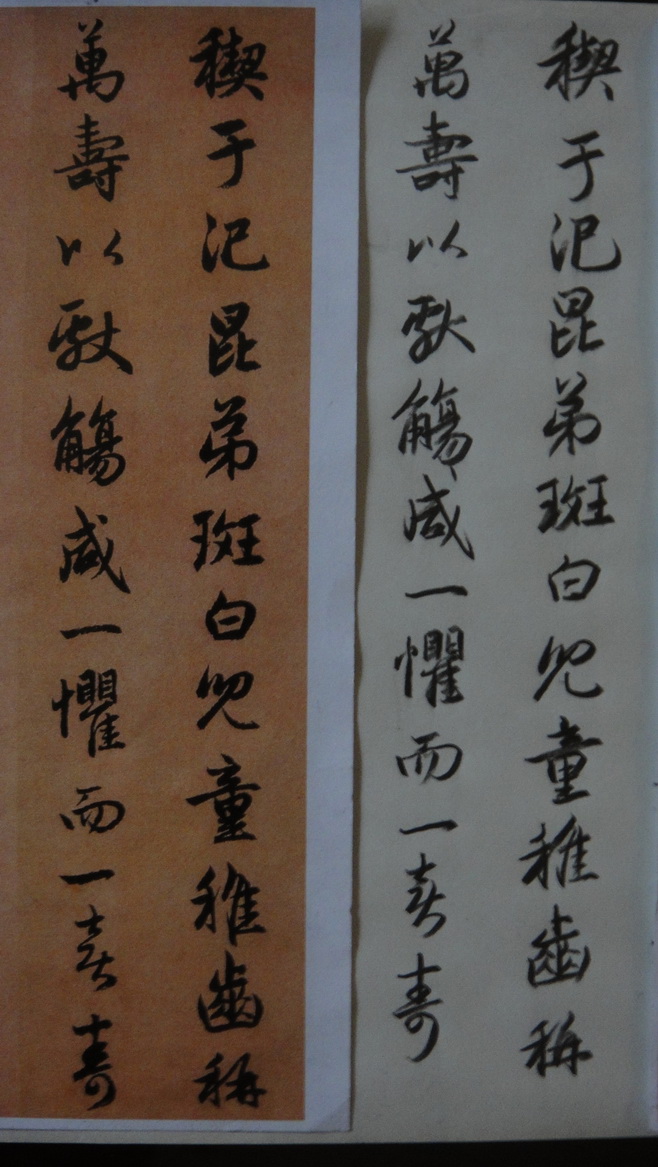 稧于汜昆弟斑白兒童稚齒稱
萬壽以獻觴咸一懼而一喜壽
稧于汜昆弟斑白兒童稚齒稱
萬壽以獻觴咸一懼而一喜壽